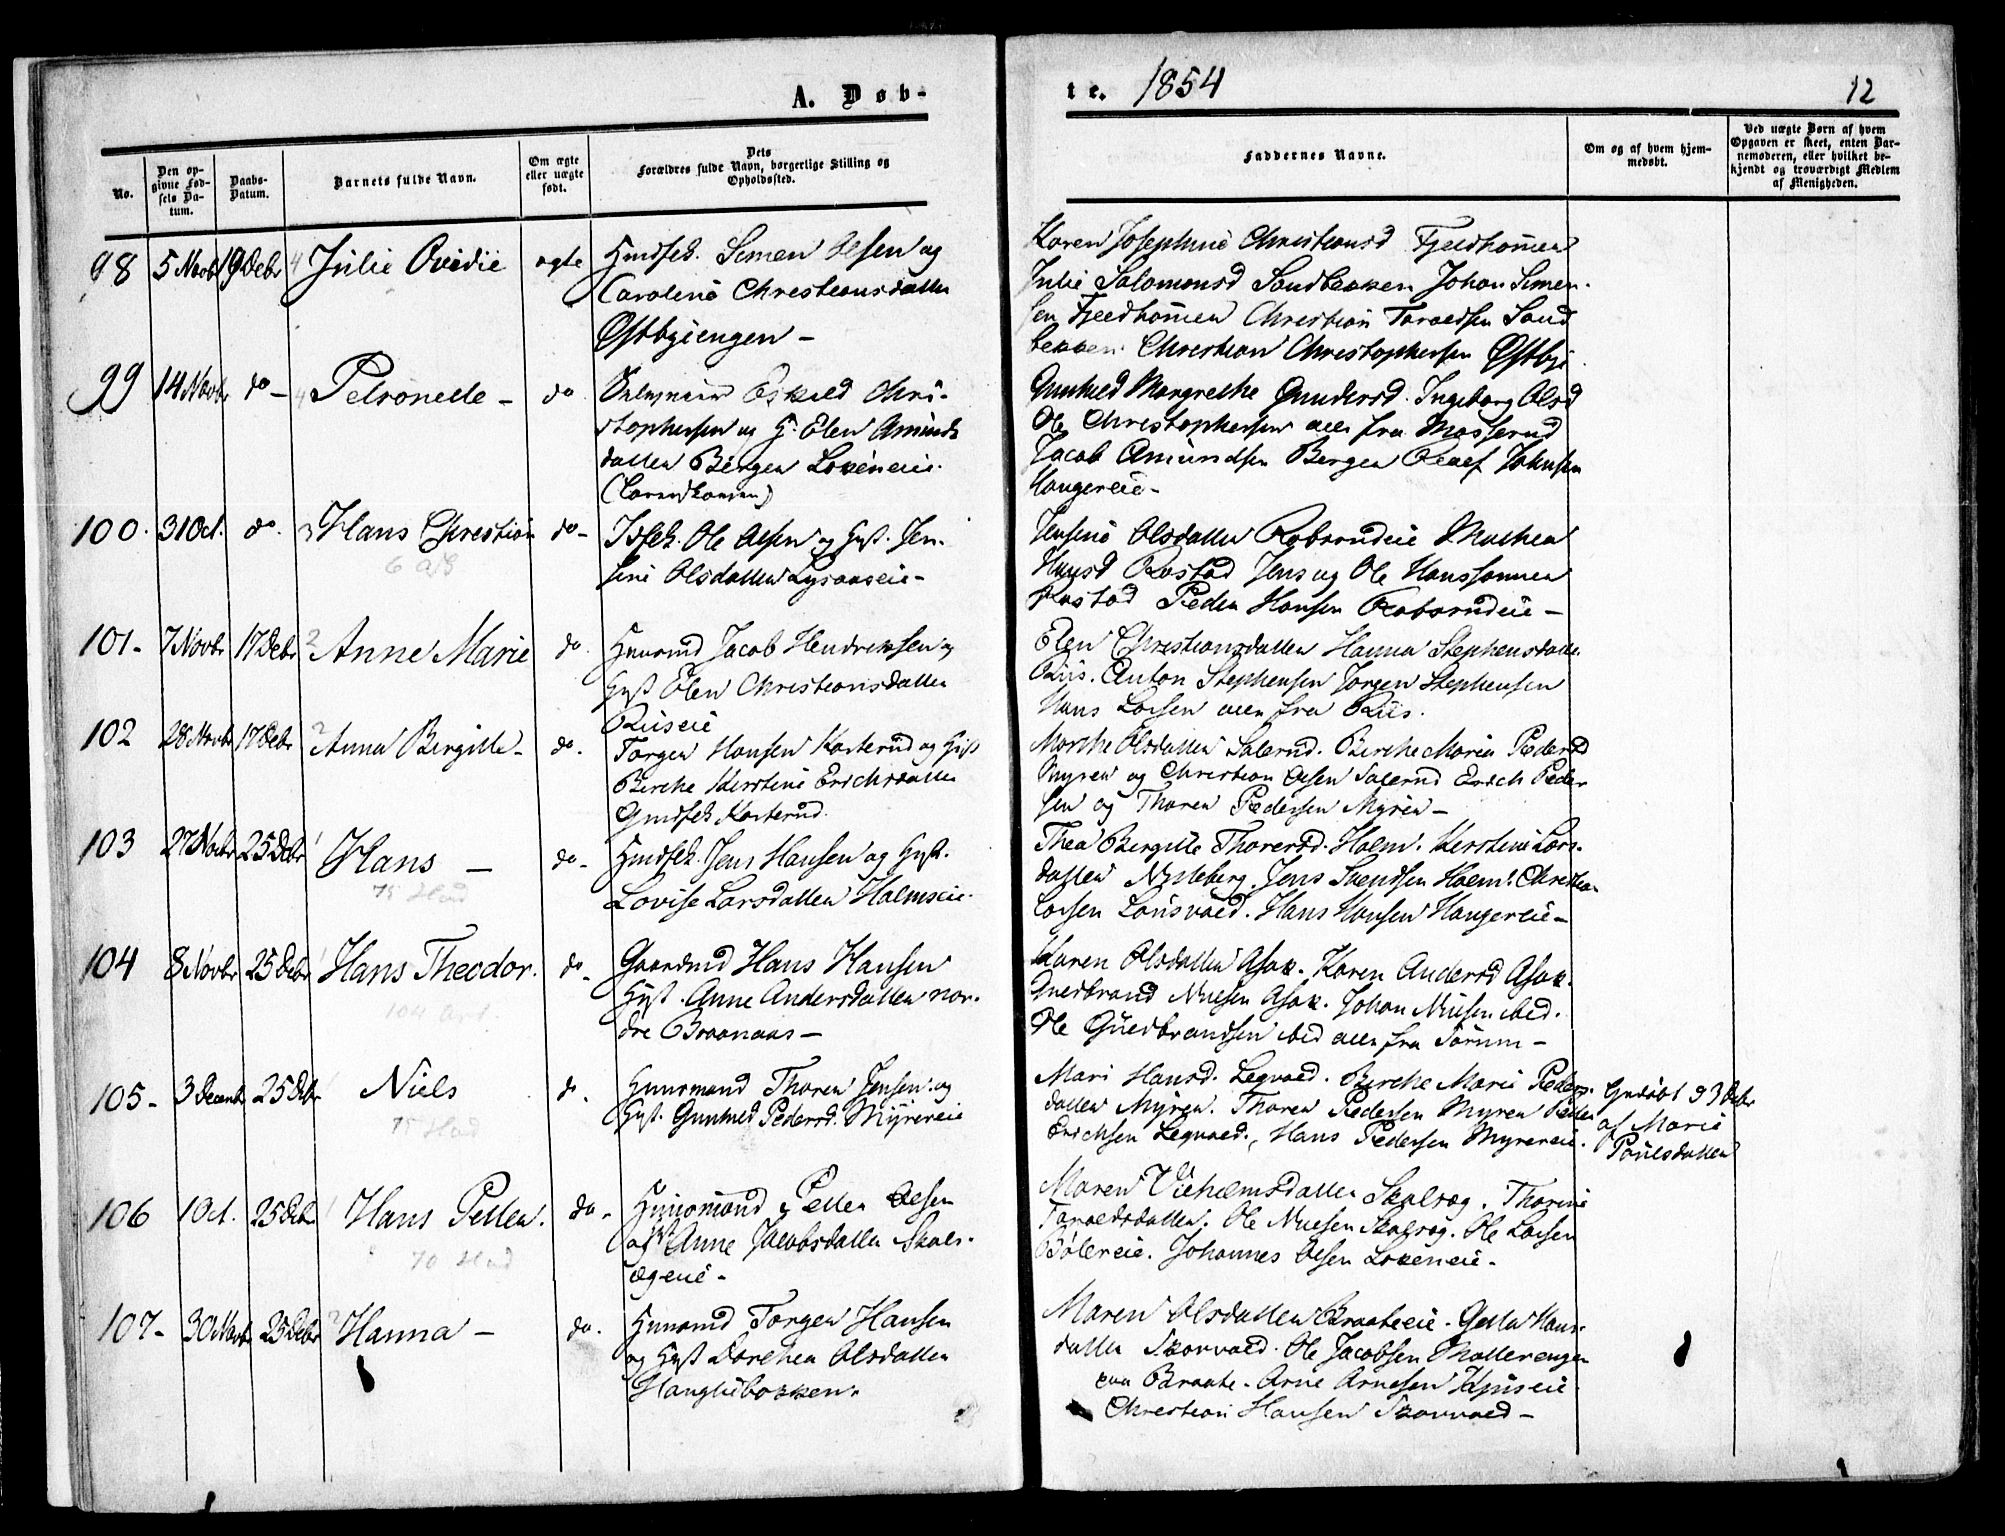 A. Døb-
te. 1854
12
No.
Den op-
givne Fød-
sels Da-
tum.
Daabs-
Datum.
Barnets fulde Navn.
Om ægte
eller uægte
født.
Dets
Forældres fulde Navn, borgerlige Stilling og
Opholdssted.
Faddernes Navne.
Om og af hvem hjem-
medøbt.
Ved uægte Børn af hvem
Opgaven er skeet, enten Bar-
nemoderen, eller hvilket be-
kjendt og troværdigt Medlem
af Menigheden.
98 5 Novb 19 Debr Julie Ovidie ægte Huusfok. Simen Olsen og
Carolene Christiansdatter
Østbyiengen –
Karen Josephine Christiansd Fjeldhammer
Julie Salomonsd Sandbekken Johan Simen-
sen Fjeldhammer Christian Taraldsen Sand
bekken Christian Christophersen Østby
99 14 Novbr do – Petronelle – do Eskild Chri-
stophersen og H. Elen Amunds
datter Bergen Lokeneie.
Gunhild Margrethe Gundersd. Ingeborg Olsd
Ole Christophersen alle fra Masserud
Jacob Amundsen Bergen Olaf Johnsen
Haugereie –
100. 31 Oct. do. Hans Christian do – Ole Olsen og Hust. Jen-
sine Olsdatter Lysaaseie –
Jensine Olsdatter Robsrudeie Mathea
Hansd Rostad Jens og Ole Hanssønner
Rostad Peder Hansen Robsrudeie –
101- 7 Novbr 17 Debr Anne Marie do. Huusmd Jacob Hendriksen og
Hust Elen Christiansdatter
Riiseie
Elen Christiansdatter Hanna Stephensdatter
Riis. Anton Stephensen Jørgen Stephensen
Hans Larsen alle fra Riis.
102 28 Novbr 17 Debr Anna Bergitte – do. Torgen Hansen Karterud og Hust
Birthe Kerstine Erichsdatter
Karterud.
Marthe Olsdatter Salerud. Birthe Maria Pedersd
Myren og Christian Olsen Salerud Erich Peder
sen og Thoren Pedersen Myren –
103 27 Novbr 25 Debr Hans – do – Jens Hansen og Hust.
Lovise Larsdatter Holmseie.
75 Had
Thea Bergitte Thoresd. Holm. Kerstine Lars-
datter Nyleberg. Jens Svendsen Holm. Christian
Larsen Lørsvold. Hans Hansen Haugereie –
104 8 Novbr 25 Debr Hans Theodor. do – Gaardmd Hans Hansen
Hust. Anne Andersdatter nor-
dre Braanaas –
Karen Olsdatter Asak. Karen Andersd Asak.
Gulbrand Nilsen Asak. Johan Nilsen ibid.
Ole Gulbrandsen ibid alle fra Sørum –
105- 3 Decembr 25 Debr Niels do. Huusmand Thoren Jensen og
Hust. Gunhild Pedersd. Myrereie
75 Had
Mari Hansd. Legvold. Birthe Marie Peders-
datter Myren. Thoren Pedersen Myren Peder
Erichsen Legvold. Hans Pedersen Myrereie.
af Marie
Poulsdatter
106 1 Oct. 25 Debr Hans Petter. do. Huusmand Petter Olsen
og Hust Anne Jacobsdatter Skals-
ægeie –
70 Had
Maren Vilhelmsdatter Skalsæg. Thorine
Taraldsdatter. Ole Nielsen Skalsæg. Ole Larsen
Bølereie. Johannes Olsen Lokeneie –
107- 30 Novbr 25 Debr Hanna – do. Huusmd Torgen Hansen
og Hust Dorthea Olsdatter
Hauglibakken.
Maren Olsdatter Braateeie. Hans-
datter Skovvold. Ole Jacobsen Møllerengen
paa Braate. Arne Arnesen
Christian Hansen Skovvold –